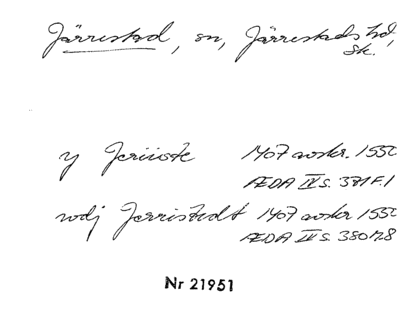 Järrestad, sn, Järrestads hd,
Sk.
y Jeriiste 1407 avskr. 1550
ÆDA IV S. 371 F.1
wdj Jerristedt 1407 avskr 1550
ÆDA IV S. 380 N.8
Nr 21951